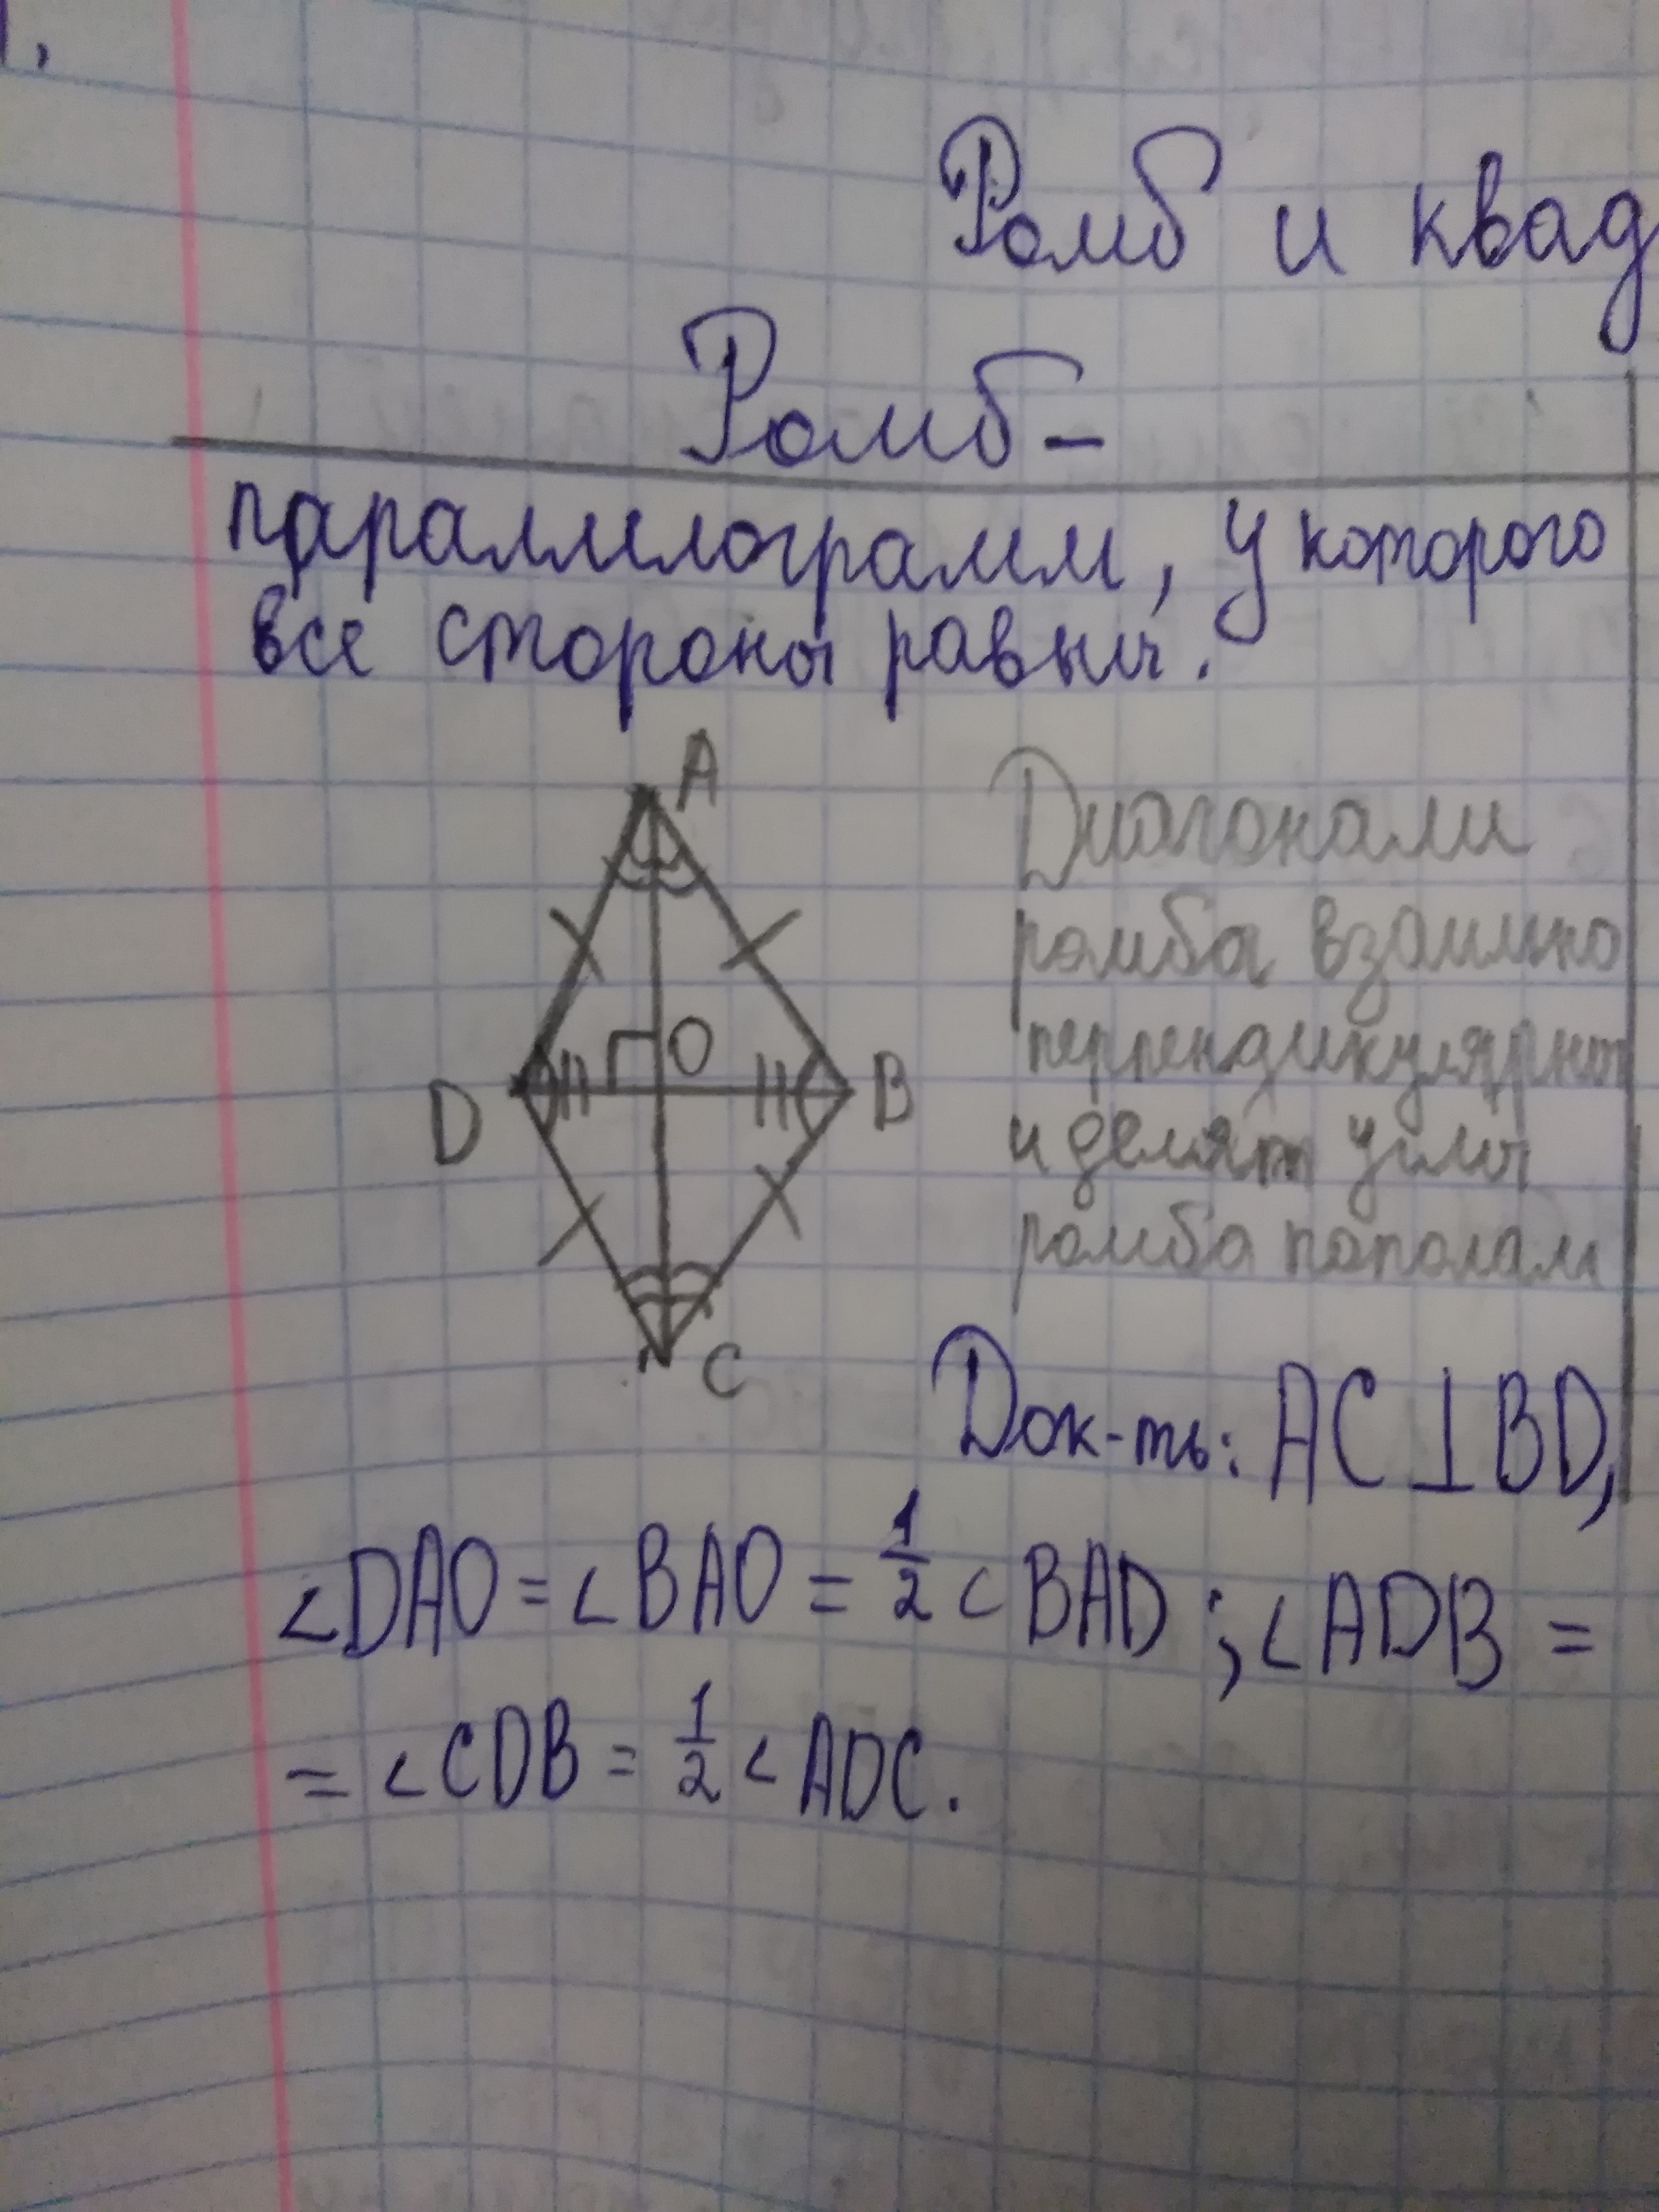 Ромб и квад
Ромб -
параллелограмм, у которого
все стороны равны.
A
Диагонали
ромба взаимно
O
перпендикулярны
D
B
и делят углы
ромба пополам
C
Док-ть: AC⊥BD,
∠DAO = ∠BAO = 1/2 ∠BAD ; ∠ADB =
= ∠CDB = 1/2 ∠ADC.